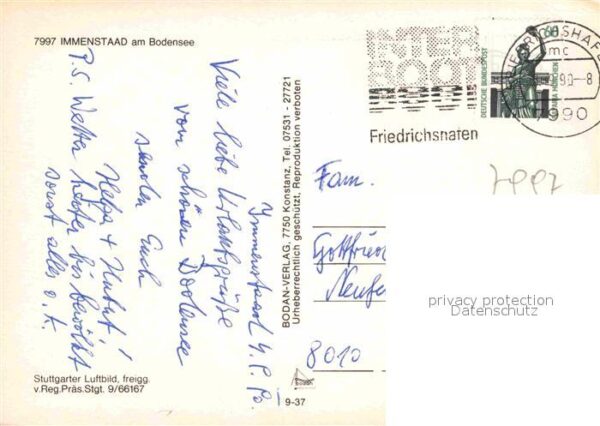 7997 IMMENSTAAD am Bodensee
Immenstaad
Viele liebe Urlaubsgrüße
vom schönen Bodensee
senden Euch
Helga + Hubert!
P.S. Wetter heiter bis bewölkt
sonst alles o.k.
Stuttgarter Luftbild, freigg.
v.Reg.Präs.Stgt. 9/66167
BODAN-VERLAG, 7750 Konstanz, Tel. 07531 - 27721
Urheberrechtlich geschützt, Reproduktion verboten
9-37
INTER
BOOT
Friedrichshafen
60
DEUTSCHE BUNDESPOST
BAVARIA MÜNCHEN
mc
90-8
7990
7997
Fam.
Gottfried
8010
privacy protection
Datenschutz